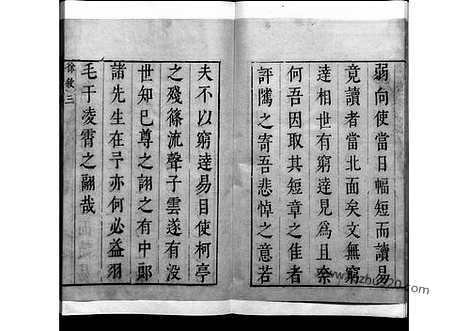 弱向使當日幅短而讀易
竟讀者當北面矣文無窮
達相世有窮達見爲且柰
何吾因取其短章之佳者
評隲之寄吾悲悼之意若
夫不以窮達易目使柯亭
之殘篠流聲子雲遂有沒
世知已尊之詡之有中郎
諸先生在予亦何必益羽
毛于凌霄之翮哉
徐敘三